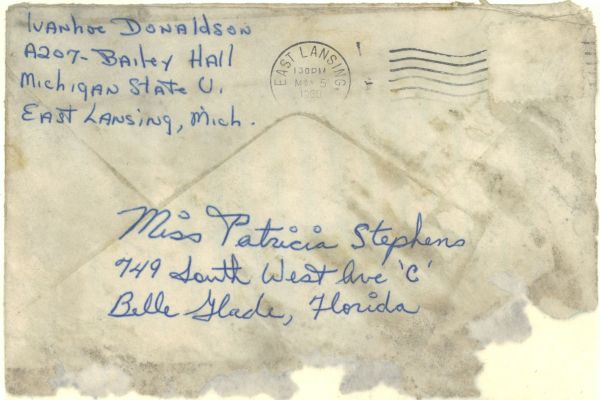 Ivanhoe Donaldson
A207- Bailey Hall
Michigan State U.
East Lansing, Mich.
EAST LANSING,
1 30 PM
5
Miss Patricia Stephens
749 South West Ave 'C'
Belle Glade, Florida